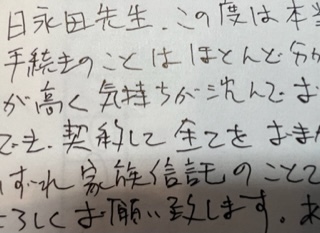 日永田先生、この度は本当
手続きのことはほとんど分か
が高く気持ちが沈んでお
でき、契約して全てをおまか
いずれ家族信託のことで
よろしくお願い致します。あ